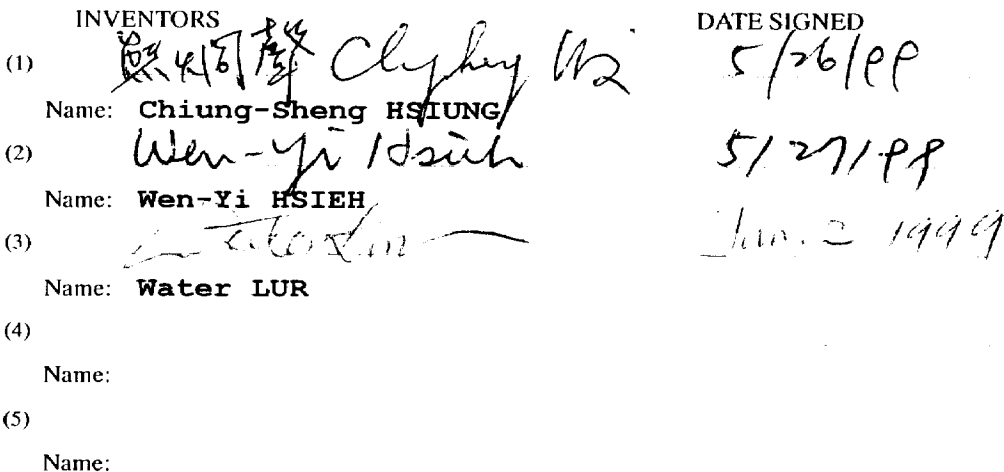 INVENTORS DATE SIGNED
(1) 熊炯聲 5/26/99
Name: Chiung-Sheng HSIUNG
(2) Wen-Yi Hsieh 5/27/99
Name: Wen-Yi HSIEH
(3) Jun. 2 1999
Name: Water LUR
(4)
Name:
(5)
Name: